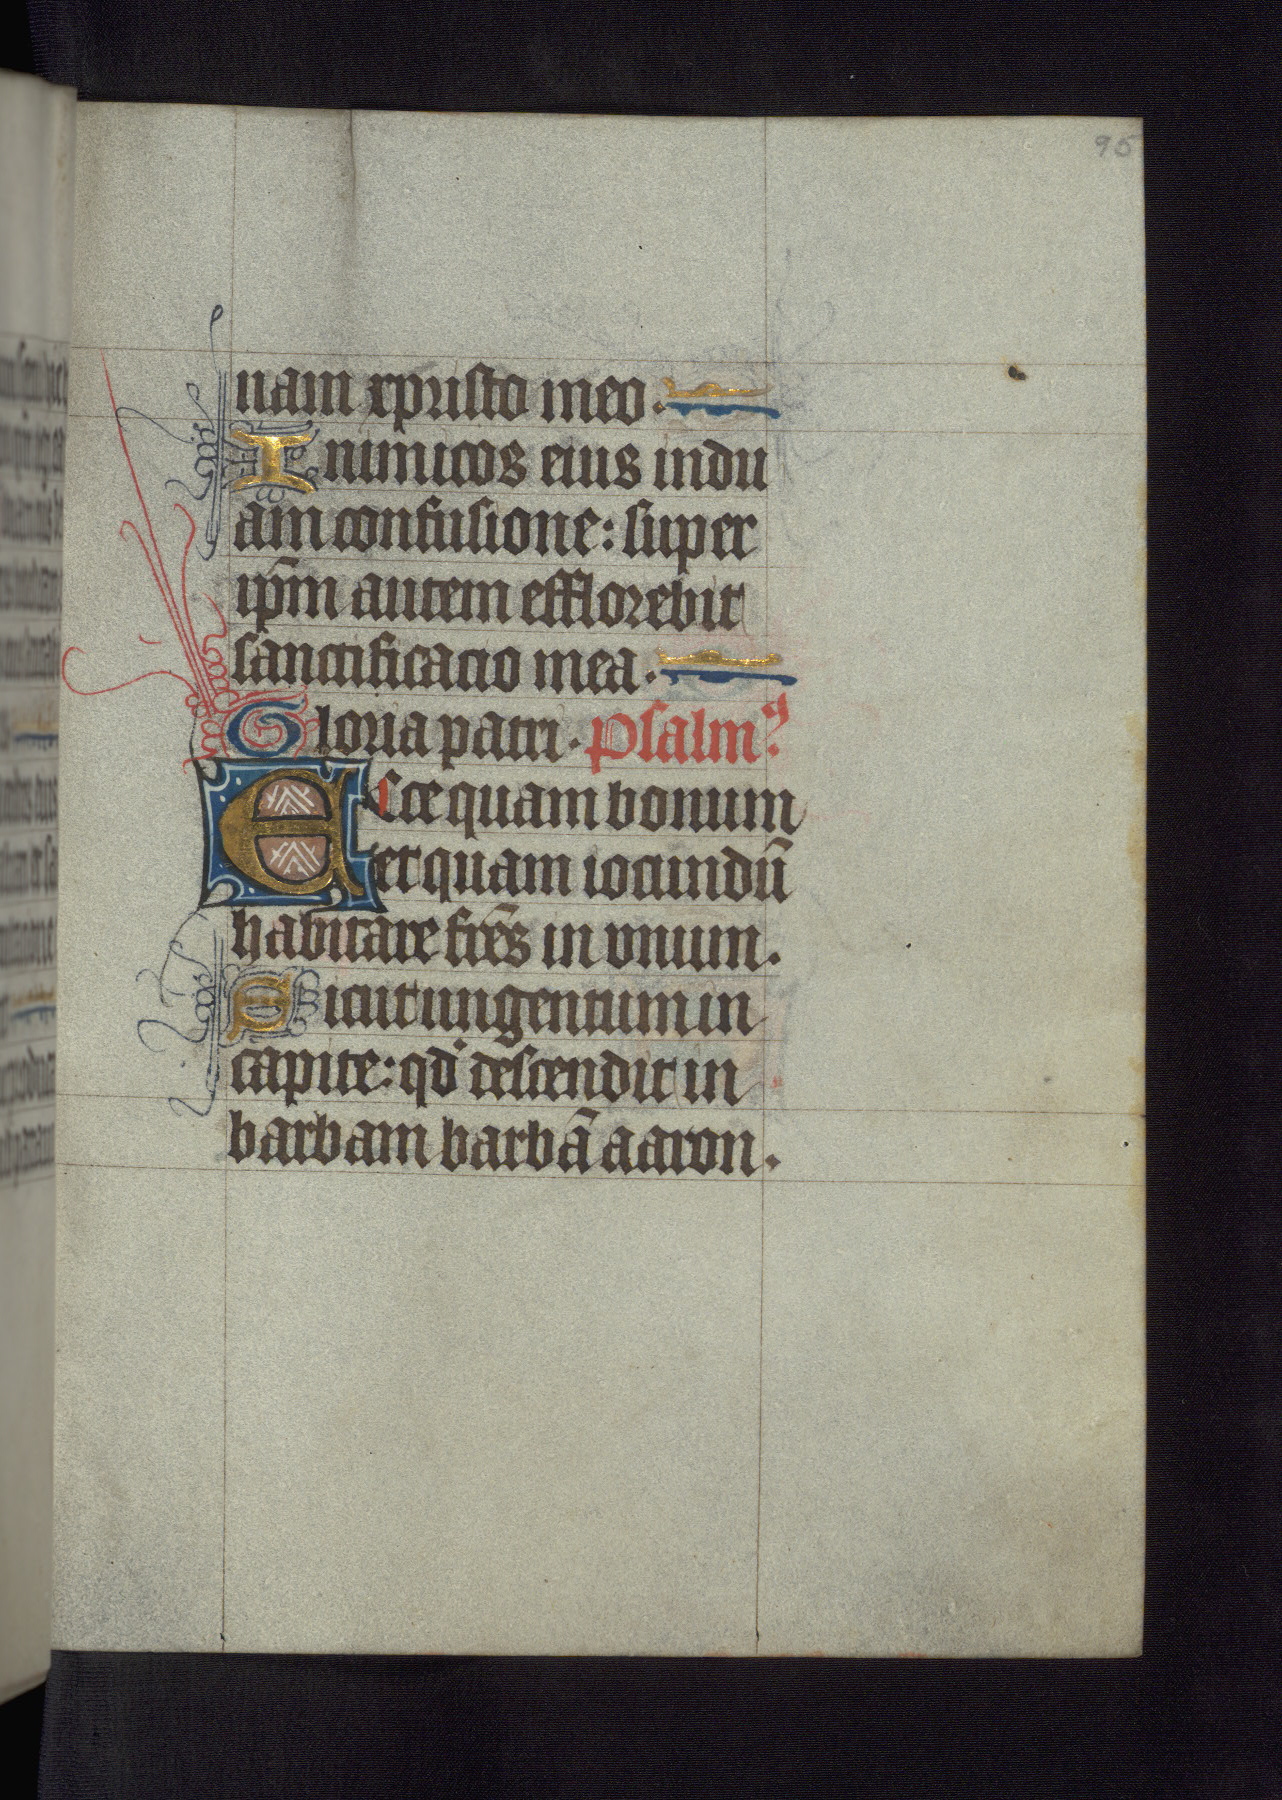 95
uam xpristo meo.
Inimicos eius indu
am confusione: super
ip̄m autem efflorebit
sanctificacio mea.
Gloria patri. Psalmꝰ.
Ecce quam bonum
et quam iocundū
habitare fr̄es in vnum.
Sicut ungentum in
capite: qd̕ descendit in
barbam barbā aaron.